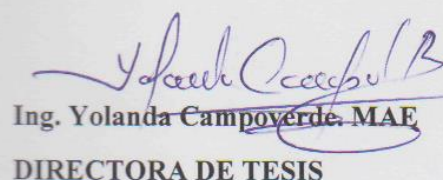 Yolanda Campov B
Ing. Yolanda Campoverde. MAE
DIRECTORA DE TESIS